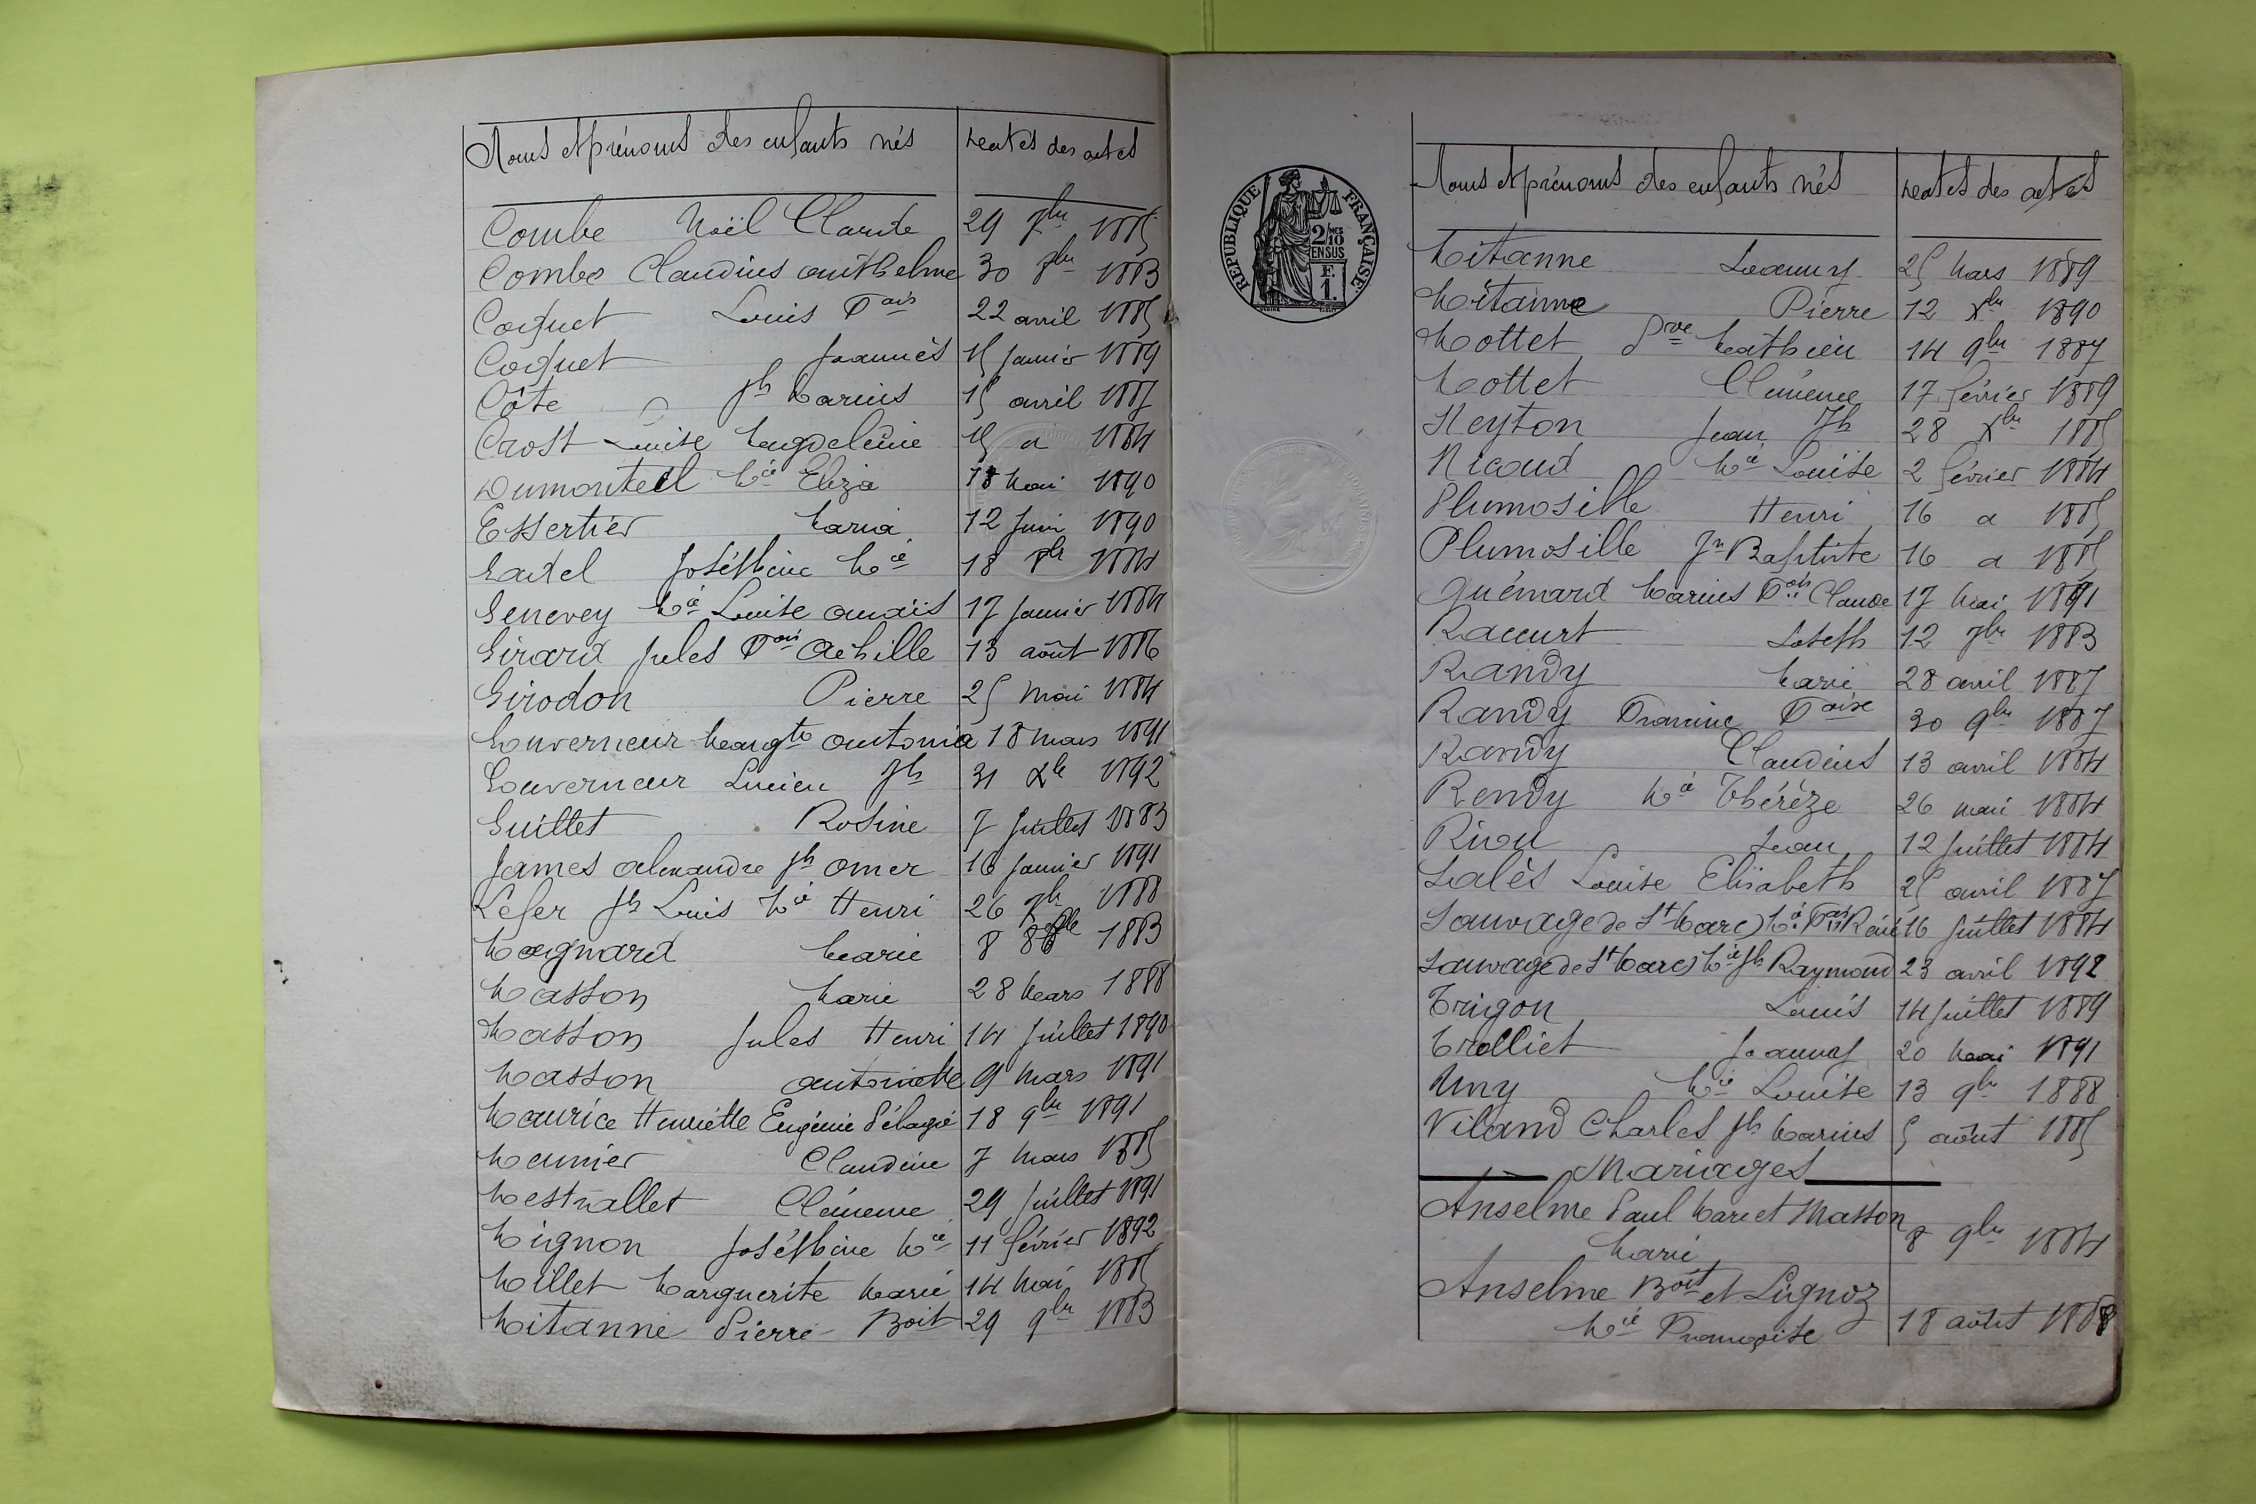 Noms et prénoms des enfants nés Dates des actes
Combe Noël Claude 29 7bre 1885
Combe Claudius Anthelme 30 8bre 1883
Coquet Louis Fois 22 avril 1885
Coquet Joannès 15 Janvier 1889
Côte Jh Marius 15 avril 1887
Crost Louise Magdeleine 15 d 1884
Dumonteil Mie Eliza 18 Mai 1890
Essertier Maria 12 Juin 1890
Gadel Joséphine Mie 18 8bre 1884
Genevey Mie Louise Anaïs 17 Janvier 1884
Girard Jules Fois Achille 13 août 1886
Girodon Pierre 25 Mai 1884
Gouverneur Margte Antonia 18 mars 1891
Gouverneur Lucien Jh 31 Xbre 1892
Guillet Rosine 7 Juillet 1883
James Alexandre Jh Omer 16 Janvier 1891
Lefer Jh Louis Mie Henri 26 7bre 1888
Magnard Marie 8 8bre 1883
Masson Marie 28 Mars 1888
Masson Jules Henri 14 Juillet 1890
Masson Antoinette 9 Mars 1891
Maurice Henriette Eugénie Pélagie 18 9bre 1891
Meunier Claudine 7 Mars 1885
Mestrallet Clémence 29 Juillet 1891
Mignon Joséphine Mie 11 février 1892
Millet Marguerite Marie 14 Mai 1885
Mitanne Pierre Boit 29 9bre 1883
RÉPUBLIQUE FRANÇAISE
2/10 EN SUS
F. 1.
Noms et prénoms des enfants nés Dates des actes
Mitanne Joanny 25 Mars 1889
Mitanne Pierre 12 Xbre 1890
Mottet Mathieu 14 9bre 1887
Mottet Clémence 17 février 1889
Neyton Jean Jh 28 Xbre 1885
Nicoud Mie Louise 2 février 1884
Plumosille Henri 16 d 1885
Plumosille Jn Baptiste 16 d 1885
Quémard Marius Fois Claude 17 Mai 1891
Raccurt Joseph 12 7bre 1883
Randy Marie 28 avril 1887
Randy Franine Foise 30 9bre 1887
Randy Claudius 13 avril 1884
Rendy Mie Thérèze 26 mai 1884
Riou Jean 12 Juillet 1884
Salès Louise Elisabeth 25 avril 1887
Sauvage de St Marc) Mie Fois René 16 Juillet 1884
Sauvage de St Marc) Mie Jh Raymond 23 avril 1892
Trigon Louis 14 Juillet 1889
Trolliet Joanny 20 Mai 1891
Uny Mie Louise 13 9bre 1888
Viland Charles Jh Marius 5 août 1885
Mariages
Anselme Paul Marc et Masson
Marie 8 9bre 1884
Anselme Boit et Lignoz
Mie Françoise 18 août 1888